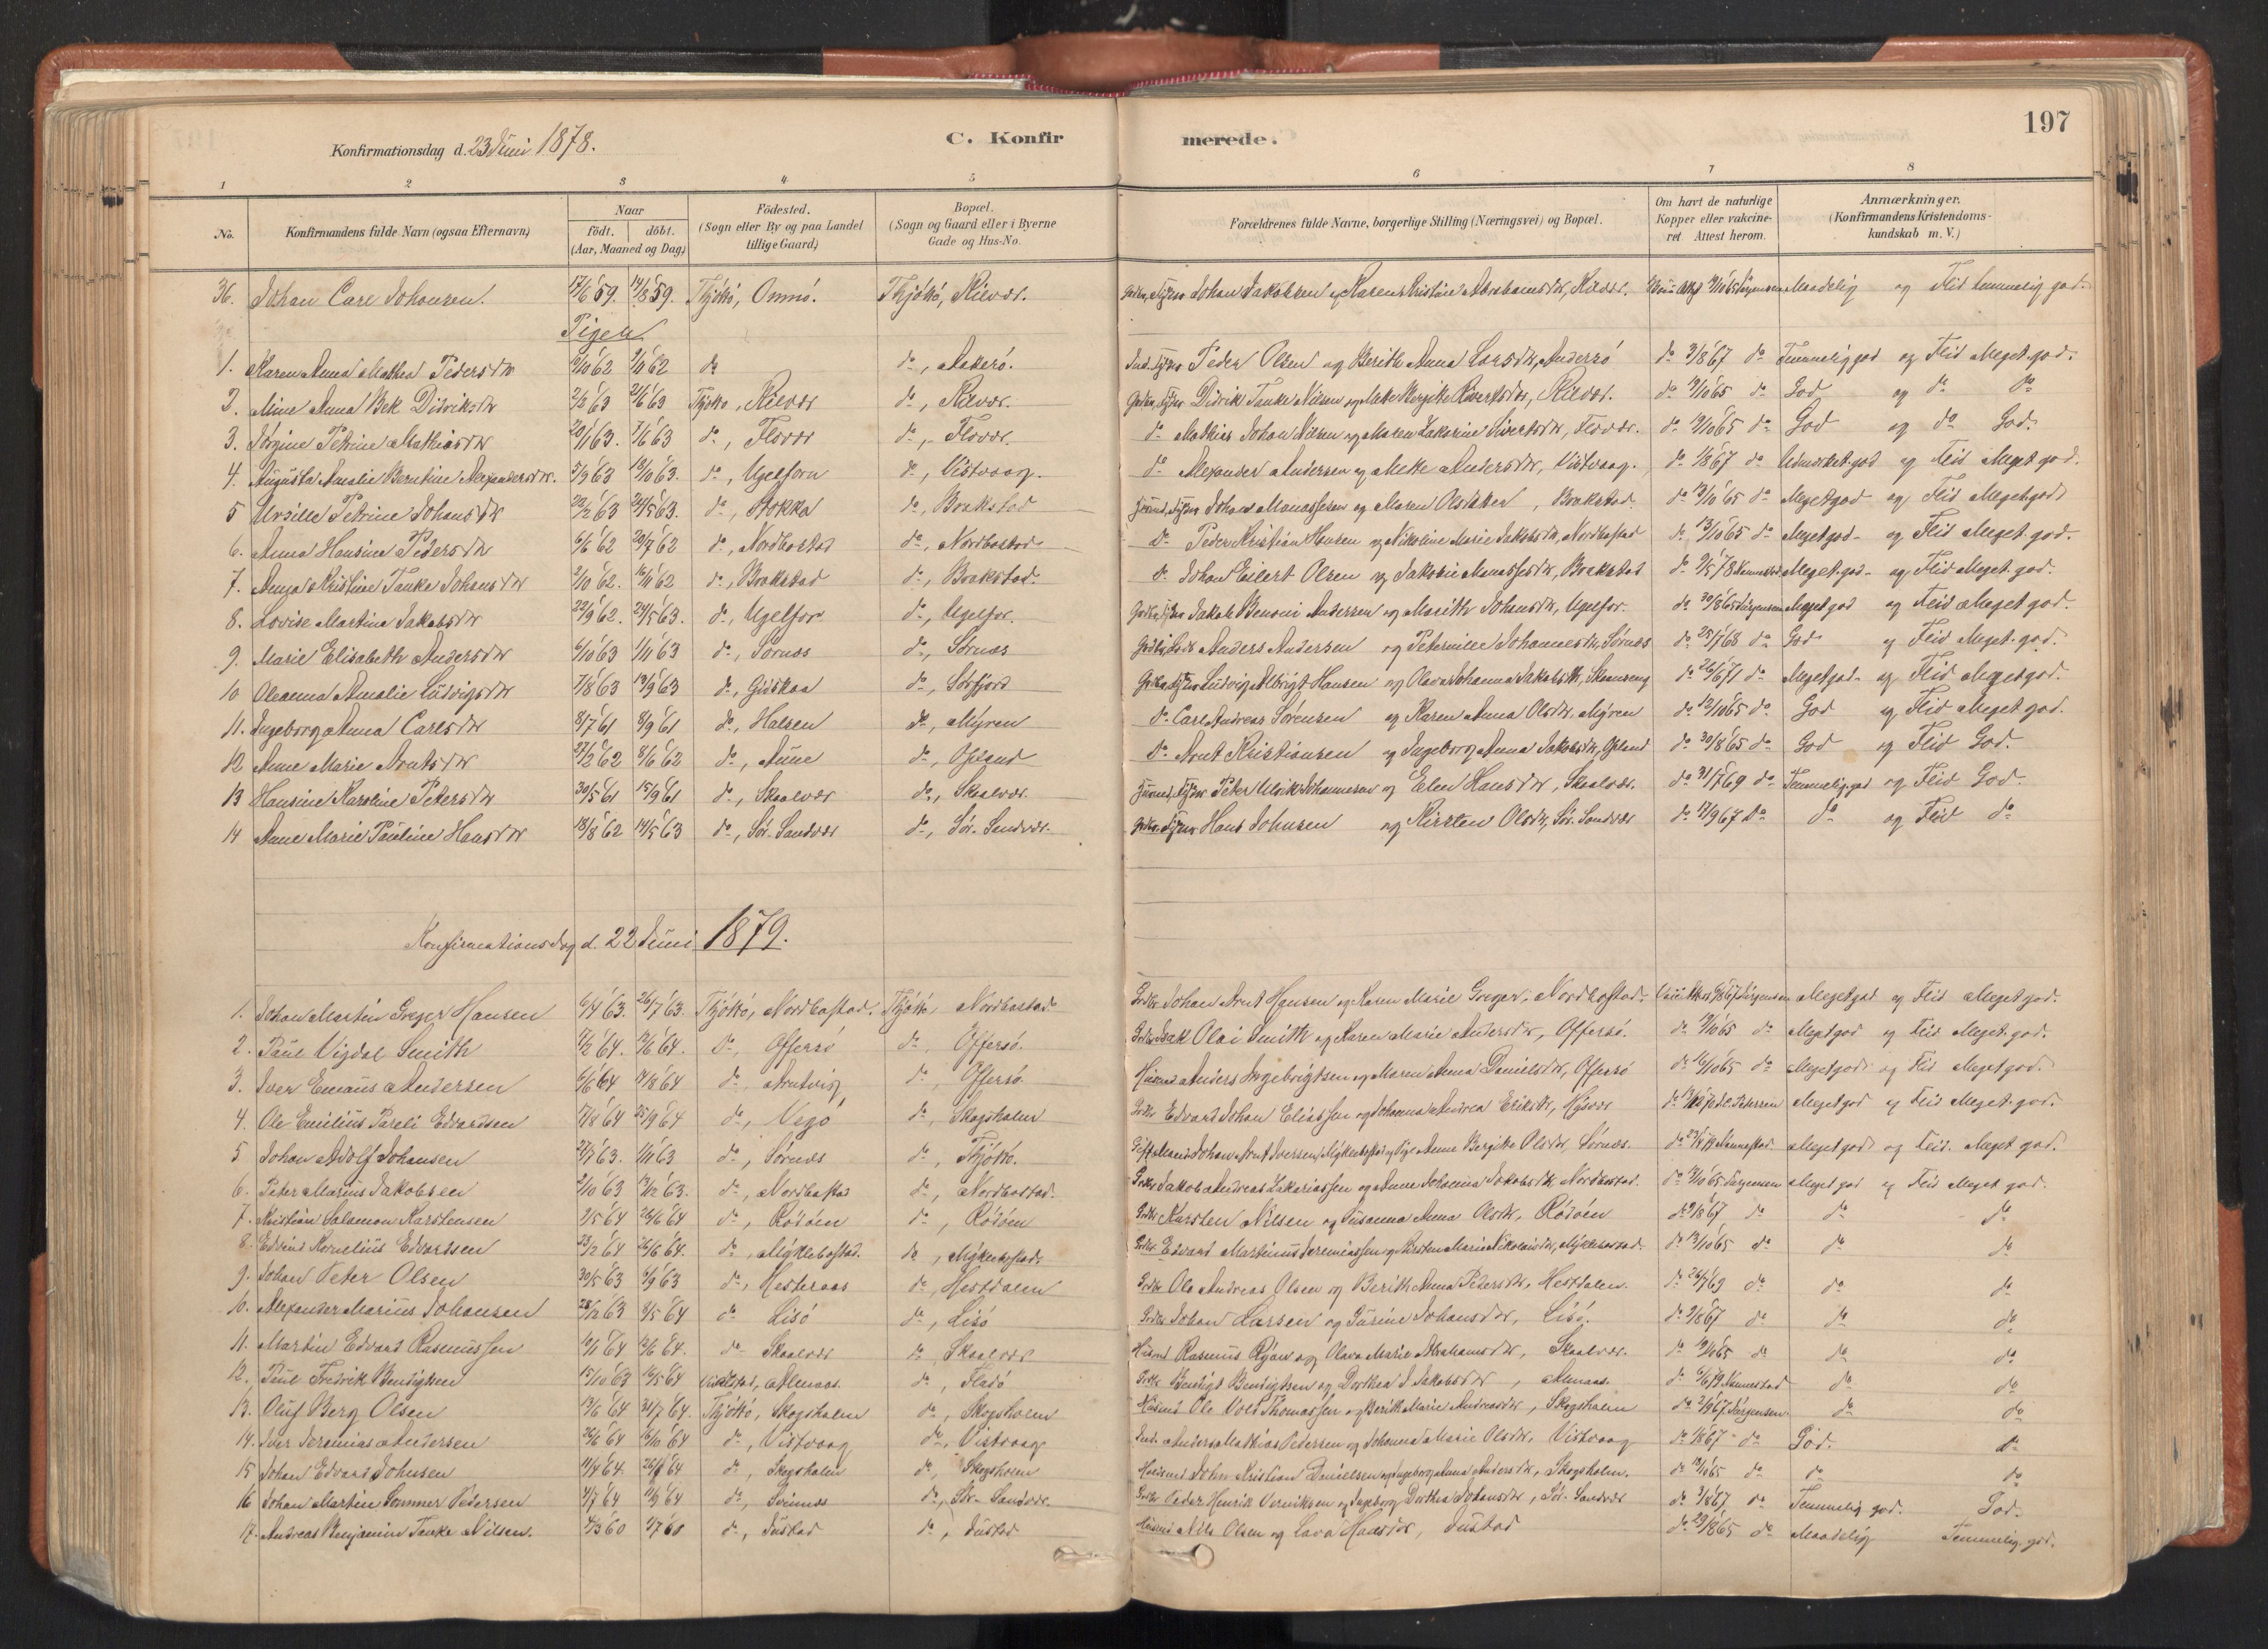 197
Konfirmationsdag d. 23 Juni 1878. C. Konfirmerede.
1 2 3 4 5 6 7 8
No. Konfirmandens fulde Navn (ogsaa Efternavn) Naar födt. döbt. (Aar, Maaned og Dag) Födested. (Sogn eller By og paa Landet tillige Gaard) Bopæl. (Sogn og Gaard eller i Byerne Gade og Hus-No. Forældrenes fulde Navne, borgerlige Stilling (Næringsvei) og Bopæl. Om havt de naturlige Kopper eller vakcineret Attest herom. Anmærkninger. (Konfirmandens Kristendomskundskab m. V.)
36. Johan Carl Johansen. 17/6 59. 14/8 59. Thjøttø, Omnø. Thjøttø, Rilvær. Johan Jakobsen og Karen Kristine Abrahamsdtr, Rilvær. Maadelig og Flid temmelig god.
Piger
1. Karen Anna Mathea Pedersdtr /10 62 /11 62 do do, Aakerø. Peder Olsen og Berith Anna Larsdtr, Anderrø do 3/8 67 do Temmelig god og Flid Meget god.
2. Mine Anna Bek Didriksdtr 2/2 63 21/6 63 Thjøttø, Rilvær do, Rilvær. Didrik Tanke Nilsen og Mette Bergitte Sivertsdtr, Rilvær. do /10 65 do God og do do
3. Jørgine Petrine Mathiasdtr 20/1 63. 7/6 63 do, Flovær do, Flovær. do Mathias Johan Nilsen og Maren Zakarine Sivertsdtr, Flovær. do /10 65 do God og do God.
4. Augusta Amalie Berntine Alexandersdtr. 5/9 63 18/10 63. do, Ugelforn do, Vistvaag. do Alexander Andersen og Mette Andersdtr, Vistvaag. do 1/8 67 do Udmerket god og Flid Meget god.
5 Ursille Petrine Johansdtr 22/2 63 24/5 63. do, Stokka do, Brakstad Johan Manassesen og Maren Olsdtr, Brakstad. do 13/10 65 do Meget god og Flid Meget god
6. Anna Hansine Pedersdtr 6/6 62 20/7 62 do, Nordbostad do, Nordbostad. Do Peder Kristian Hansen og Nikoline Marie Jakobsdtr, Nordbostad do 13/10 65 do Meget god og Flid Meget god.
7. Anna Kristine Tanke Johansdtr 2/10 62. 16/11 62 do, Brakstad do, Brakstad. do Johan Eilert Olsen og Jakobie Manassesdtr, Brakstad do 9/5 78 Meget god og Flid Meget god.
8. Lovise Martina Jakobsdtr 22/9 62. 24/5 63. do, Ugelfor do, Ugelfor. Jakob Benoni Andersen og Marith Johansdtr, Ugelfor. do 30/8 65 Jørgensen Meget god og Flid Meget god.
9. Marie Elisabeth Andersdtr 6/10 63 1/11 63 do, Sørnæs do, Sørnæs Anders Andersen og Petermine Johannesdtr, Sørnæs do 25/7 68 do God og Flid Meget god.
10 Oleanna Amalie Ludvigsdtr 7/8 63 13/9 63 do, Gidskaa do, Sørfjord Ludvig Albrigt Hansen og Olava Johanna Jakobsdtr do 26/6 71 do Meget god og Flid Meget god.
11. Ingeborg Anna Carlsdtr 8/7 61 8/9 61 do, Halsen do, Myren do Carl Andreas Sørensen og Karen Anna Olsdtr, Myren do 12/10 65 do God og Flid Meget god.
12 Anne Marie Arntsdtr 27/2 62 8/6 62 do, Aune do, Opland Do Arnt Kristiansen og Ingeborg Anna Jakobsdtr, Opland do 30/8 65 do God og Flid God.
13 Hansine Karoline Petersdtr 30/5 61 15/9 61 do, Skaalvær do, Skaalvær. Peter Ulrik Johannesen og Elen Hansdtr, Skaalvær. do 31/7 69 do Temmelig god og Flid God.
14 Anne Marie Pauline Hansdtr 18/8 62 14/5 63 do, Sør-Sandvær do, Sør-Sandvær. Hans Johnsen og Kirsten Olsdtr, Sør-Sandvær do 17/9 67 Do do og Flid do
Konfirmationsdag d. 22 Juni 1879.
1. Johan Martin Greger Hansen 6/4 63. 26/7 63. Thjøttø, Nordbostad. Thjøttø, Nordbostad. Johan Arnt Hansen og Karen Marie Greger, Nordbostad. Jørgensen Meget god og Flid Meget god.
2. Paul Vigdal Smith 7/2 64. 12/6 64. Do, Offersø do, Offersø. Isak Olai Smith og Karen Marie Andersdtr, Offersø. do /10 65 do Meget god og Flid Meget god.
3. Iver Emaus Andersen 6/6 64 14/8 64 do, Arntvig do, Offersø. Anders Ingebrigtsen og Maren Anna Danielsdtr, Offersø do 16/10 65 do Meget god og Flid Meget god.
4. Ole Emilius Pareli Edvardsen 7/8 64 25/9 64 do, Vegø do, Skogsholm Edvard Johan Eliassen og Johanna Andrea Eriksdtr, Hysvær Petersen Meget god og Flid Meget god.
5 Johan Adolf Johansen 27/7 63. 1/11 63 do, Sørnæs do, Thjøttø. Johan Arnt Iversen, Myklebostad og Pige Anne Bergitte Olsdtr, Sørnæs. Meget god og Flid. Meget god.
6. Peter Marius Jakobsen 2/10 63 13/12 63. do, Nordbostad do, Nordbostad. Jakob Andreas Zakariassen og Anne Johanna Jakobsdtr, Nordbostad. do /10 65 Jørgensen Meget god og Flid Meget god.
7. Kristian Salomon Karstensen 2/5 64 26/6 64 do, Rødøen do, Rødøen Karsten Nilsen og Susanna Anna Olsdtr, Rødøen do 9/8 67 do do do
8. Edvind Kornelius Edvardsen 23/2 64 26/6 64. do, Myklebostad. do, Myklebostad. Edvard Martinus Jeremiassen og Kirsten Marie Nikolaisdtr, Myklebostad. do 13/10 65 do do do
9. Johan Peter Olsen 30/5 63 6/9 63 do, Hesteraas do, Hestdalen Ole Andreas Olsen og Berith Anna Pedersdtr, Hestdalen. do 26/7 69 do do do
10. Alexander Marius Johansen 28/12 63 8/5 64 do Lisø do, Lisø Johan Larsen og Gurine Johansdtr, Lisø. do 9/8 67 do do do
11. Martin Edvard Rasmussen 19/1 64 12/6 64. do Skaalvær do, Skaalvær Rasmus og Olava Marie Abrahamsdtr, Skaalvær. do /10 65 do do do
12. Paul Fredrik Bendigtsen 15/10 63 16/5 64 Vivelstad, Alenaas. do, Fladø Bendigt Bendigtsen og Dorthea J. Jakobsdtr, Alenaas. do 6/6 79 do do
13. Oluf Berg Olsen 13/6 64 31/7 64. Thjøttø, Skogsholm do, Skogsholm Ole Vold Thomassen og Berith Marie Andreasdtr, Skogsholm do 2/9 67 Jørgensen. do do
14. Iver Jeremias Andersen 26/6 64 16/10 64 do, Vistvaag do, Vistvaag Anders Mathias Pedersen og Johanna Marie Olsdtr, Vistvaag do 1/8 67 do God. do
15 Johan Edvard Johnsen 11/4 64. 26/6 64 do, Skogsholm do, Skogsholm John Kristian Danielsen og Ingeborg Anna Andersdtr, Skogsholm. do /10 65 do do do
16 Johan Martin Sommer Pedersen 4/7 64 11/9 64 do, Svinnæs do, Sør-Sandvær. Peder Henrik Verniksen og Ingeborg Dorthea Johansdtr, Sør-Sandvær do 3/8 67 do Temmelig god. God.
17. Andreas Benjamin Tanke Nilsen. 4/3 60 1/7 60 do, Justad do, Justad Nils Olsen og Lava Hansdtr, Justad do 29/8 65 do Maadelig Temmelig god.